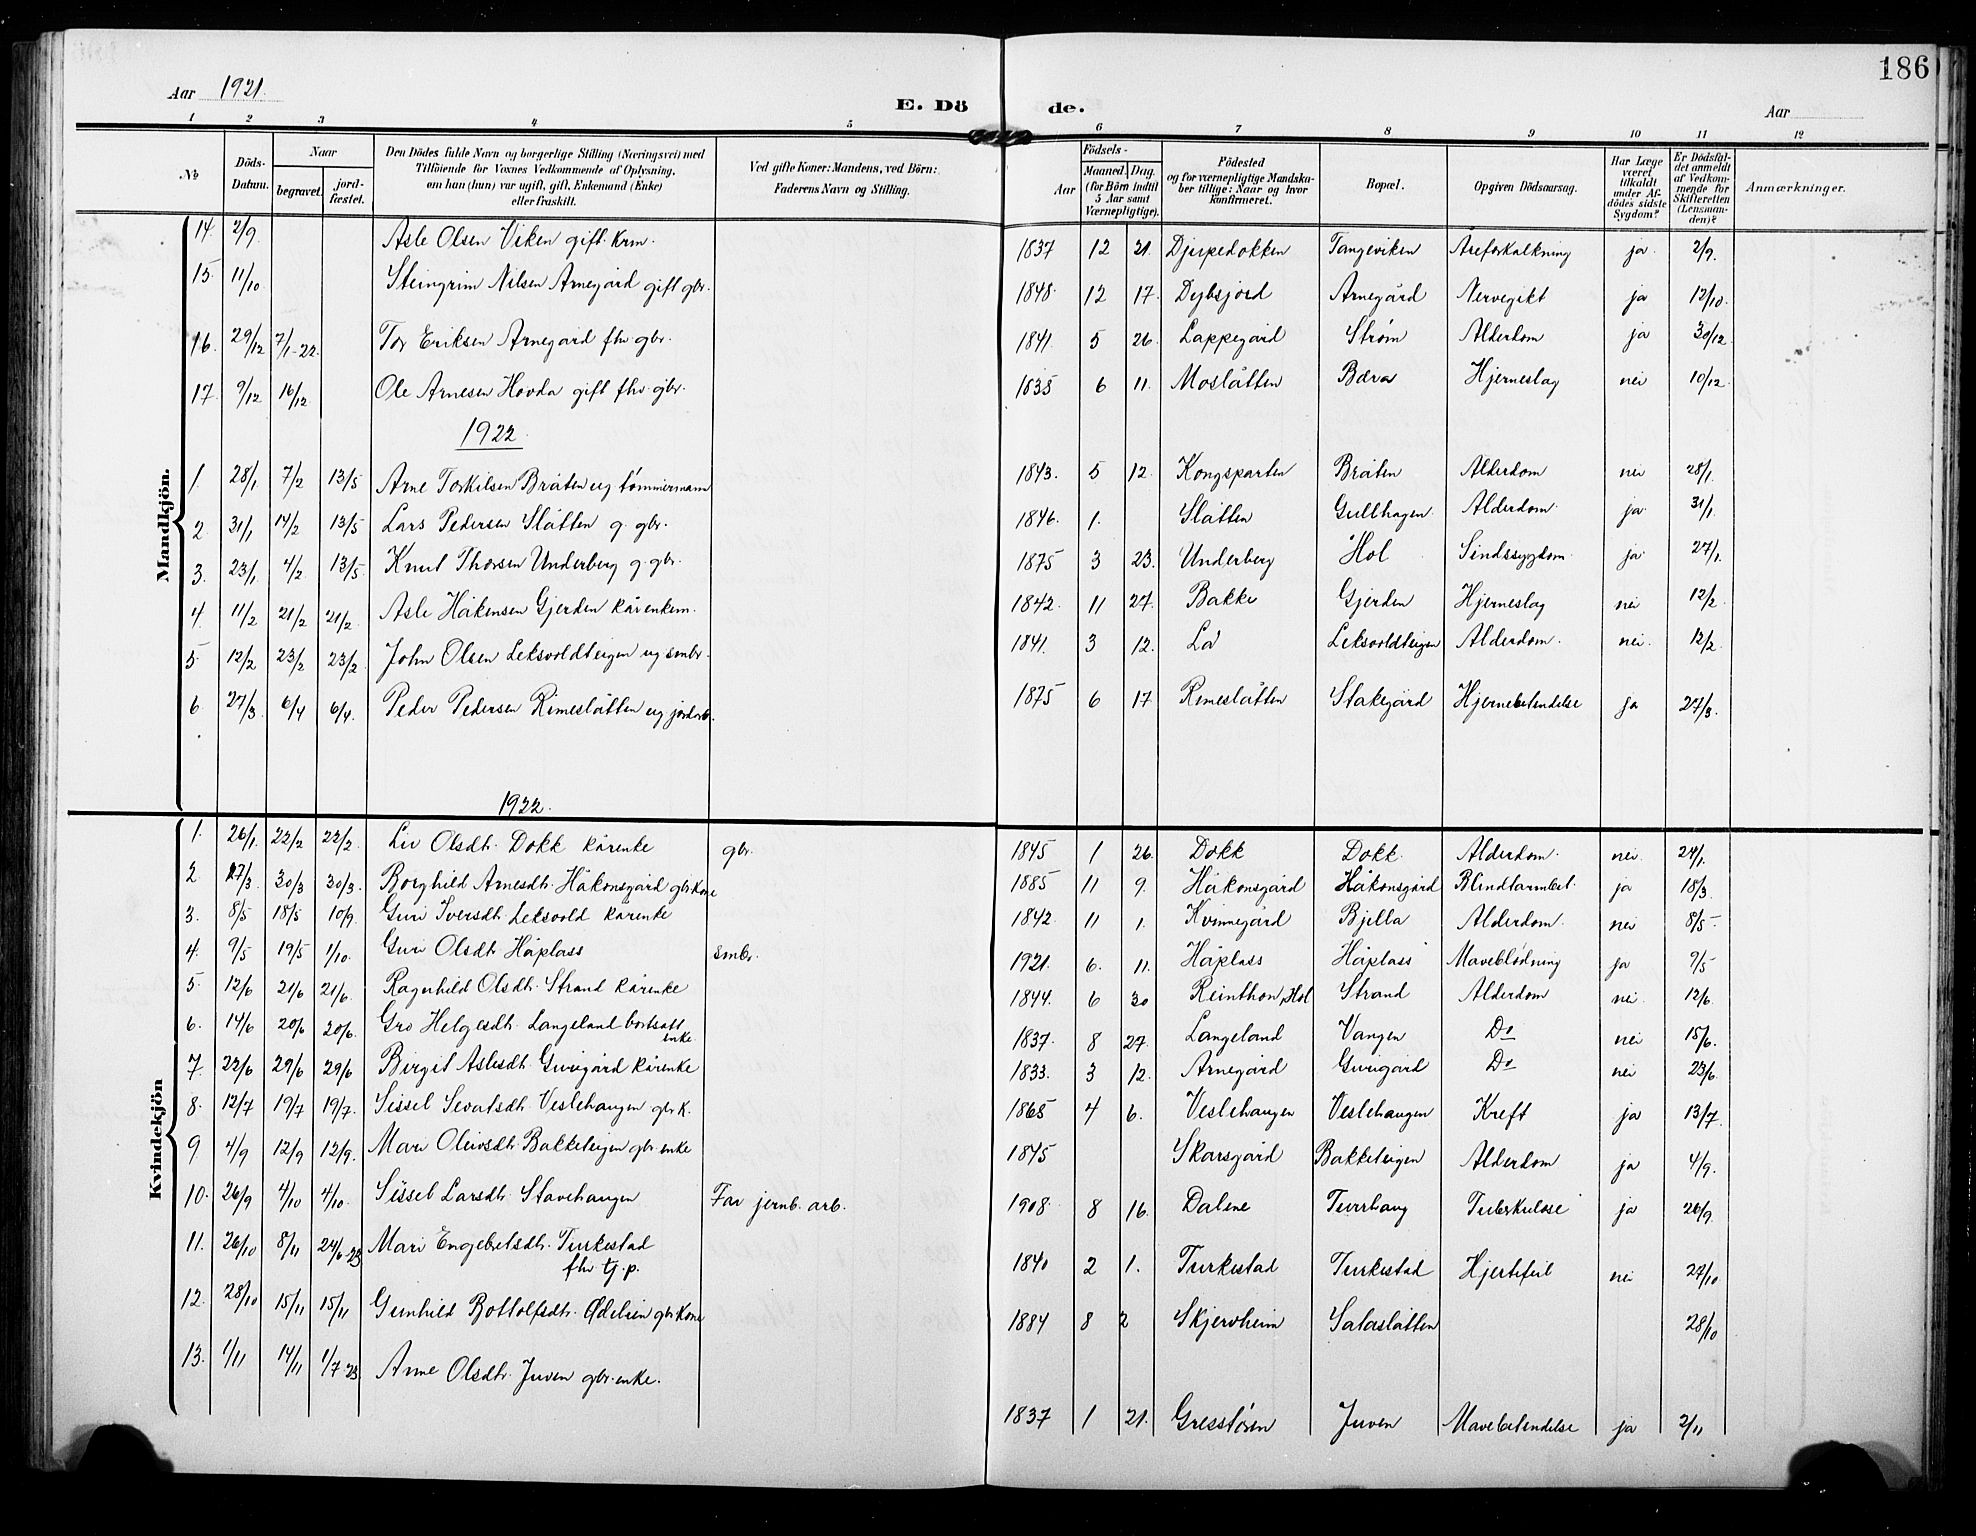 186
Aar 1921.
E. Dö de.
Aar
1 2 3 4 5 6 7 8 9 10 11 12
No
Döds-Datum.
Naar
begravet. jord-fæstet.
Den Dödes fulde Navn og borgerlige Stilling (Næringsvei) med
Tilföiende for Voxnes Vedkommende af Oplysning,
om han (hun) var ugift, gift, Enkemand (Enke)
eller fraskilt.
Ved gifte Koner: Mandens, ved Börn:
Faderens Navn og Stilling.
Födsels-
Aar Maaned. Dag.
(for Börn indtil 5 Aar samt Værnepligtige).
Födested
og for værnepligtige Mandskaber tillige: Naar og hvor konfirmeret.
Bopæl.
Opgiven Dödsaarsag.
Har Læge været tilkaldt under Afdödes sidste Sygdom?
Er Dödsfaldet anmeldt af Vedkommende for Skifteretten (Lensmanden)?
Anmærkninger.
Mandkjön.
14. 2/9. Asle Olsen Viken gift. krm. 1837 12 21. Djupedokken Tangeviken Åreforkalkning ja 2/9.
15. 11/10 Steingrim Nilsen Arnegård gift gbr. 1848. 12 17. Dybsjord Arnegård Nervegikt ja 12/10.
16. 29/12 7/1-22. Tor Eriksen Arnegård fhv. gbr. 1841. 5 26. Lappegård Strøm Alderdom ja 30/12
17. 9/12 16/12 Ole Arnesen Hovda gift fhv. gbr. 1835 6 11. Moslåtten Bæra Hjerneslag nei 10/12
1922.
1. 28/1 7/2 13/5 Arne Torkilsen Bråten ug tømmermann 1843. 5 12. Kongsparten Bråten Alderdom nei 28/1.
2 31/1 14/2 13/5 Lars Pedersen Slåtten g. gbr. 1846. 1. Slåtten Gullhagen Alderdom ja 31/1.
3. 23/1 4/2 13/5. Knut Thorsen Underberg g. gbr. 1875 3 23. Underberg Hol Sindssygdom. ja 27/1.
4. 11/2 21/2 21/2 Asle Håkensen Gjerden kårenkem. 1842. 11 27. Bakke Gjerden Hjerneslag nei 12/2.
5 12/2 23/2 23/2 John Olsen Leksvoldteigen ug smbr. 1841. 3 12. Lo Leksvoldteigen Alderdom. nei. 12/2.
6. 27/3. 6/4 6/4. Peder Pedersen Rimeslåtten ug jordarb. 1875 6 17 Rimeslåtten Stakegård Hjernebetendelse ja 27/3.
1922.
Kvindekjön
1. 26/1. 22/2 22/2. Liv Olsdtr. Dokk kårenke gbr. 1845 1 26. Dokk Dokk. Alderdom. nei 27/1.
2 17/3. 30/3 30/3. Borghild Arnesdtr. Håkonsgård gbr kone 1885 11 9. Håkonsgård Håkonsgård Blindtarmbet. ja 18/3.
3. 8/5 18/5 10/9. Guri Iversdtr. Leksvold kårenke 1842. 11 1. Kvinnegård Bjella Alderdom. nei 8/5.
4. 9/5 19/5 1/10. Guri Olsdtr. Håplass smbr. 1921. 6. 11. Håplass Håplass Maveblødning ja 9/5
5. 12/6 21/6 21/6. Ragnhild Olsdtr. Strand kårenke 1844. 6 30 Reinthon, Hol Strand Alderdom nei 12/6.
6. 14/6 20/6 20/6. Gro Helgesdtr. Langeland bortsatt enke. 1837. 8 27. Langeland Vangen Do nei 15/6.
7. 22/6 29/6 29/6 Birgit Aslesdtr. Gurigård kårenke 1833. 3 12. Arnegård Gurigård Do nei 23/6.
8. 12/7 19/7 19/7. Sissel Sevatsdtr. Veslehaugen gbr k. 1865 4 6. Veslehaugen Veslehaugen Kreft ja 13/7.
9 4/9 12/9 12/9. Mari Oleivsdtr. Bakketeigen gbr. enke 1845 Skarsgård Bakketeigen Alderdom ja 4/9.
10. 26/9 4/10 4/10. Sissel Larsdtr. Stavehaugen Far jernb. arb. 1908. 8 16. Dalene Tverhaug Tuberkulose ja 26/9.
11. 26/10 8/11 24/6 23 Mari Engebretsdtr. Turkestad
fhv tj. p. 1840 2 1. Turkestad Turkestad Hjertefeil nei 27/10
12. 28/10 15/11 15/11 Gunhild Bottolfsdtr. Ødelien gbr kone 1884 8 2 Skjervheim Sataslåtten 28/10
13. 1/11 14/11 1/7 23 Anne Olsdtr. Juven gbr. enke. 1837 1 21. Gresstøen Juven Mavebetendelse ja 2/11